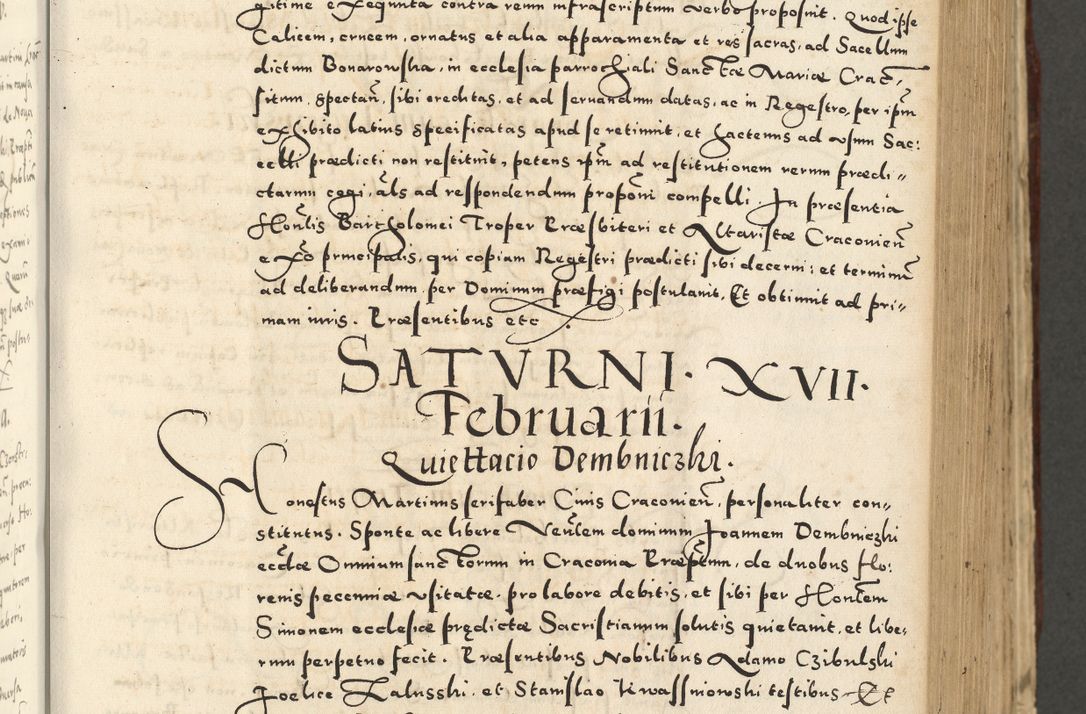 gitime exequuta contra reum infrascriptum verbo proposuit. Quod ipse
Calicem, crucem, ornatus et alia apparamenta et res sacras, ad Sacellum
dictum Bonarowska, in ecclesia parrochiali Sanctæ Mariæ Crac̃:
situm, spectañ, sibi creditas, et ad seruandum datas, ac in Regestro, per ip̃m
exhibito latius specificatas apud se retinuit, et hactenus ad vsum Sac:
celli prædicti non restituit, petens ip̃m ad restitutionem rerum prædi:
ctarum cogi, al̃s ad respondendum propõni compelli. In præsentia
Honl̃is Bartholomei Troper Præsbiteri et Altaristæ Cracoulień
ex Xo principalis, qui copiam Regestri prædicti sibi decerni: et terminũ
ad deliberandum per Dominum præfigi postulauit, Et obtinuit ad pri:
mam iuris. Præsentibus etc.
SATVRNI. XVII.
Februarii.
Quiettacio Dembniczki.
Honestus Martinus serifaber Ciuis Cracouień, personaliter con:
stitutus. Sponte ac libere Veñlem dominum Joannem Dembniczki
eccl̃æ Omnium sanctorum in Cracouia Præp̃tum, de duobus flo:
renis pecuniæ vsitatæ, pro labore debitis, et sibi per Honl̃em
Simonem ecclesiæ prędictæ Sacristianum solutis quietauit, et libe:
rum perpetuo fecit. Præsentibus Nobilibus Adamo Czibulski
Foelice Zalusski, et Stanislao Kwassniowski testibus Et